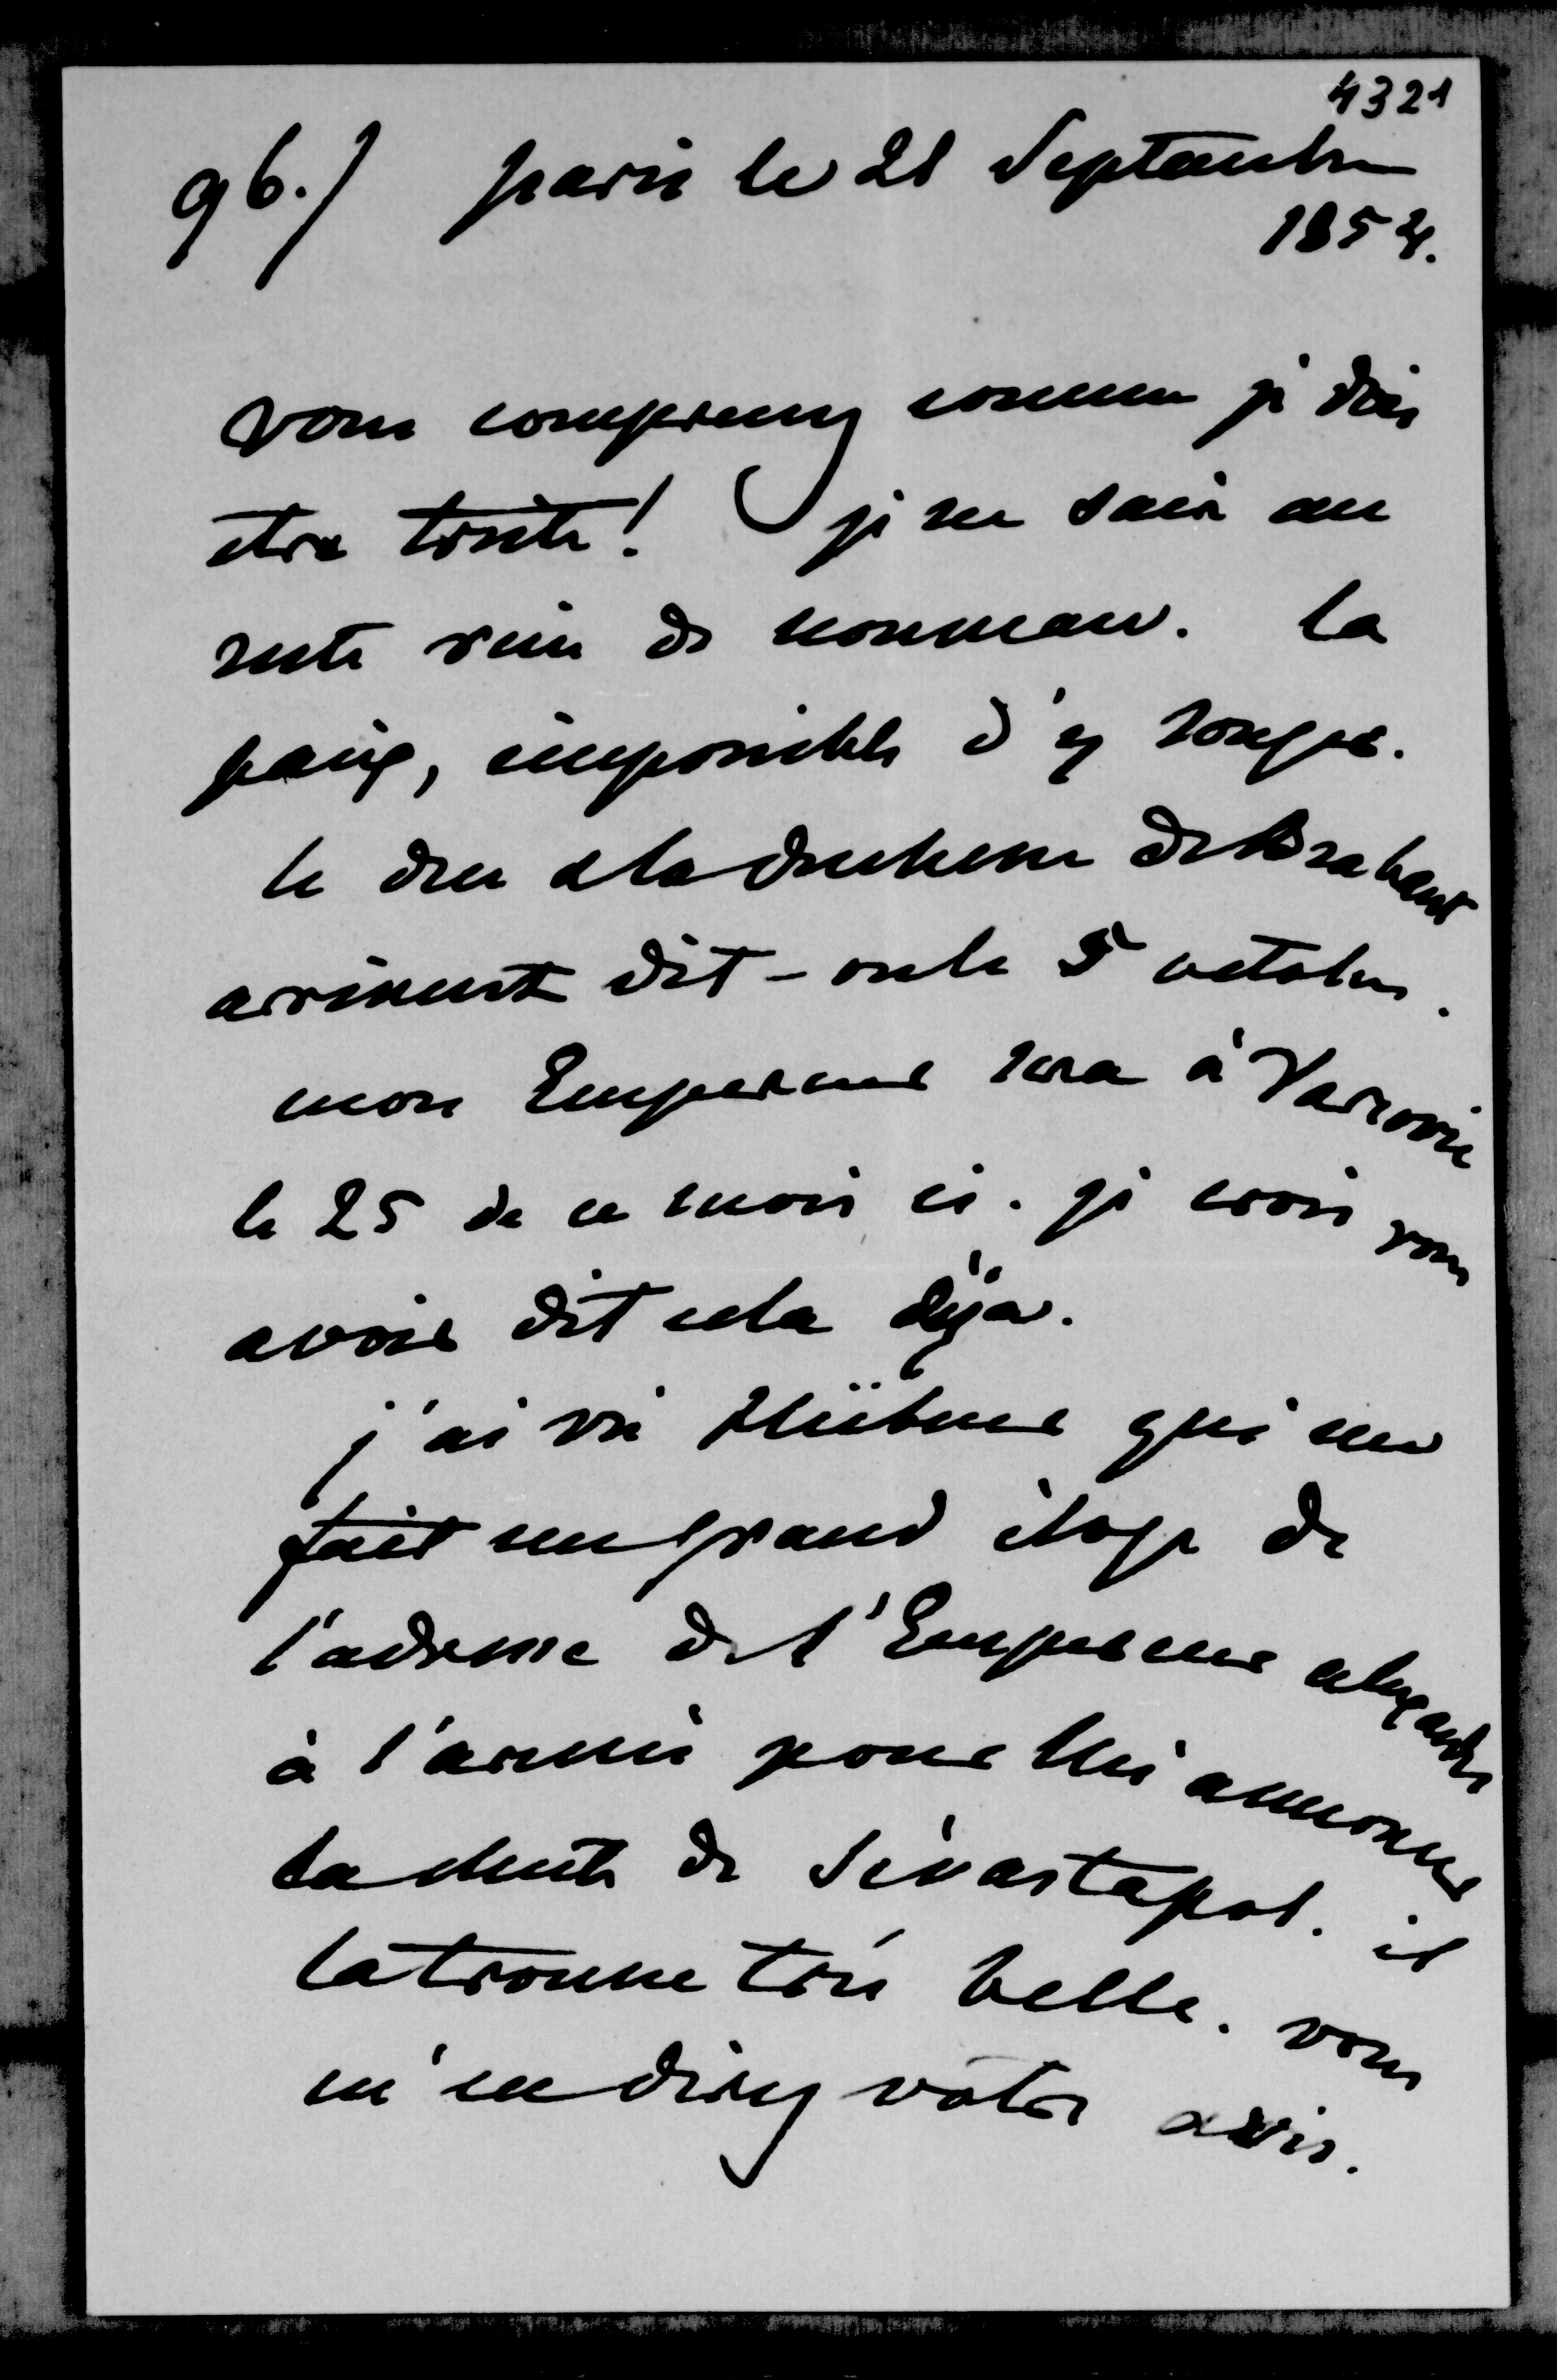 4321
96./ paris le 21 Septembre
1854.
vous comprenez comme je dois
etre triste! je ne sais au
reste rien de nouveau. la
paix, impossible d'y songer.
le duc & la duchesse de Brabant
arrivent dit-on le 5 octobre.
mon Empereur sera à Varsovie
le 25 de ce mois ci. je crois vous
avoir dit cela déjà.
j'ai vu Hübner qui me
fait un grand éloge de
l'adresse de l'Empereur alexandre
à l'armée pour lui annoncer
la chute de Sévastopol. il
la trouve très belle. vous
m'en direz votre avis.